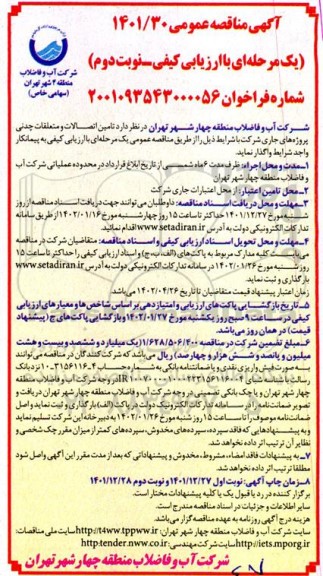 آگهی مناقصه عمومی ۱۴۰۱/۳۰
(یک مرحله‌ای با ارزیابی کیفی - نوبت دوم)
شماره فراخوان ۲۰۰۱۰۹۳۵۴۳۰۰۰۰۵۶
شرکت آب و فاضلاب
منطقه ۴ شهر تهران
(سهامی خاص)
شرکت آب و فاضلاب منطقه چهار شهر تهران در نظر دارد تامین اتصالات و متعلقات چدنی
پروژه‌های جاری شرکت با شرایط ذیل را از طریق مناقصه عمومی یک مرحله‌ای با ارزیابی کیفی به پیمانکار
واجد شرایط واگذار نماید.
۱- مدت و محل اجراء: ظرف مدت ۶ ماه شمسی از تاریخ ابلاغ قرارداد در محدوده عملیاتی شرکت آب
و فاضلاب منطقه چهار شهر تهران
۲- محل تامین اعتبار: از محل اعتبارات جاری شرکت
۳- مهلت و محل دریافت اسناد مناقصه: داوطلبان می‌توانند جهت دریافت اسناد مناقصه از روز
شنبه مورخ ۱۴۰۱/۱۲/۲۷ حداکثر تا ساعت ۱۵ روز چهارشنبه مورخ ۱۴۰۲/۰۱/۱۶ از طریق سامانه
تدارکات الکترونیکی دولت به آدرس www.setadiran.ir اقدام نمایند.
۴- مهلت و محل تحویل اسناد ارزیابی کیفی و اسناد مناقصه: متقاضیان شرکت در مناقصه
می‌بایست کلیه مدارک مربوط به پاکت‌های (الف، ب، ج) و اسناد ارزیابی کیفی را حداکثر تا ساعت ۱۵
روز شنبه مورخ ۱۴۰۲/۰۱/۲۶ در سامانه تدارکات الکترونیکی دولت به آدرس www.setadiran.ir
بارگذاری و ثبت نماید.
زمان اعتبار پیشنهاد قیمت متقاضیان تا تاریخ ۱۴۰۲/۰۴/۲۶ می‌باشد.
۵- تاریخ بازگشایی پاکت‌های ارزیابی و امتیازدهی بر اساس شاخص‌ها و معیارهای ارزیابی
کیفی در ساعت ۹ صبح روز یکشنبه مورخ ۱۴۰۲/۰۱/۲۷ و بازگشایی پاکت‌های ج (پیشنهاد
قیمت) در همان روز می‌باشد.
۶- مبلغ تضمین شرکت در مناقصه ۱/۶۲۸/۵۰۶/۴۰۰ (یک میلیارد و ششصد و بیست و هشت
میلیون و پانصد و شش هزار و چهارصد) ریال می‌باشد که شرکت‌کنندگان در مناقصه می‌توانند
به صورت فیش واریزی نقدی و یا ضمانتنامه بانکی به شماره حساب
چهار شهر تهران و یا چک بانکی تضمینی در وجه شرکت آب و فاضلاب منطقه چهار شهر تهران دریافت و
تصویر ضمانتنامه را در سامانه تدارکات الکترونیک دولت در پاکت (الف) بارگذاری و ثبت نماید و اصل
ضمانتنامه موصوف را تا ساعت ۱۵ روز شنبه مورخ ۱۴۰۲/۰۱/۲۶ به دبیرخانه این شرکت تسلیم نماید
و به پیشنهادهایی که فاقد سپرده، سپرده‌های مخدوش، سپرده‌های کمتر از میزان مقرر چک شخصی و
نظایر آن ترتیب اثر داده نخواهد شد.
۷- به پیشنهادات فاقد امضاء، مشروط، مخدوش و پیشنهاداتی که بعد از مدت مقرر این آگهی واصل شود
مطلقا ترتیب اثر داده نخواهد شد.
۸- زمان چاپ آگهی: نوبت اول ۱۴۰۱/۱۲/۲۷ و نوبت دوم ۱۴۰۱/۱۲/۲۸
برگزار کننده در رد یا قبول یک یا کلیه پیشنهادات مختار است.
سایر اطلاعات و جزئیات در اسناد مناقصه مندرج است.
هزینه درج آگهی روزنامه به عهده مناقصه‌گزار می‌باشد.
سایت شرکت آب و فاضلاب منطقه چهار شهر تهران: http://t4ww.tpww.ir سایت ملی مناقصات:
http://iets.mporg.ir سایت شرکت مهندسی: http:tender.nww.co.ir
شرکت آب و فاضلاب منطقه چهار شهر تهران